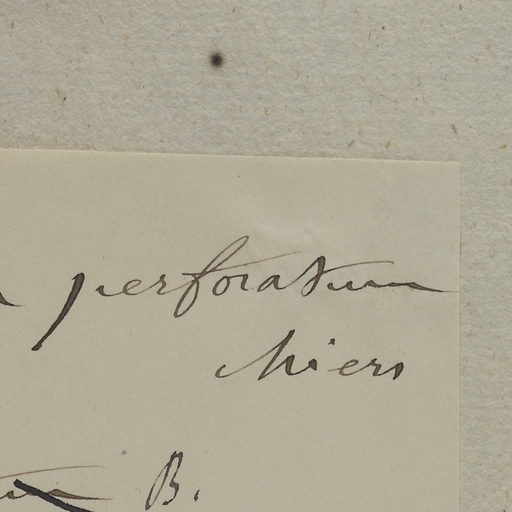 perforatum
Miers
B.